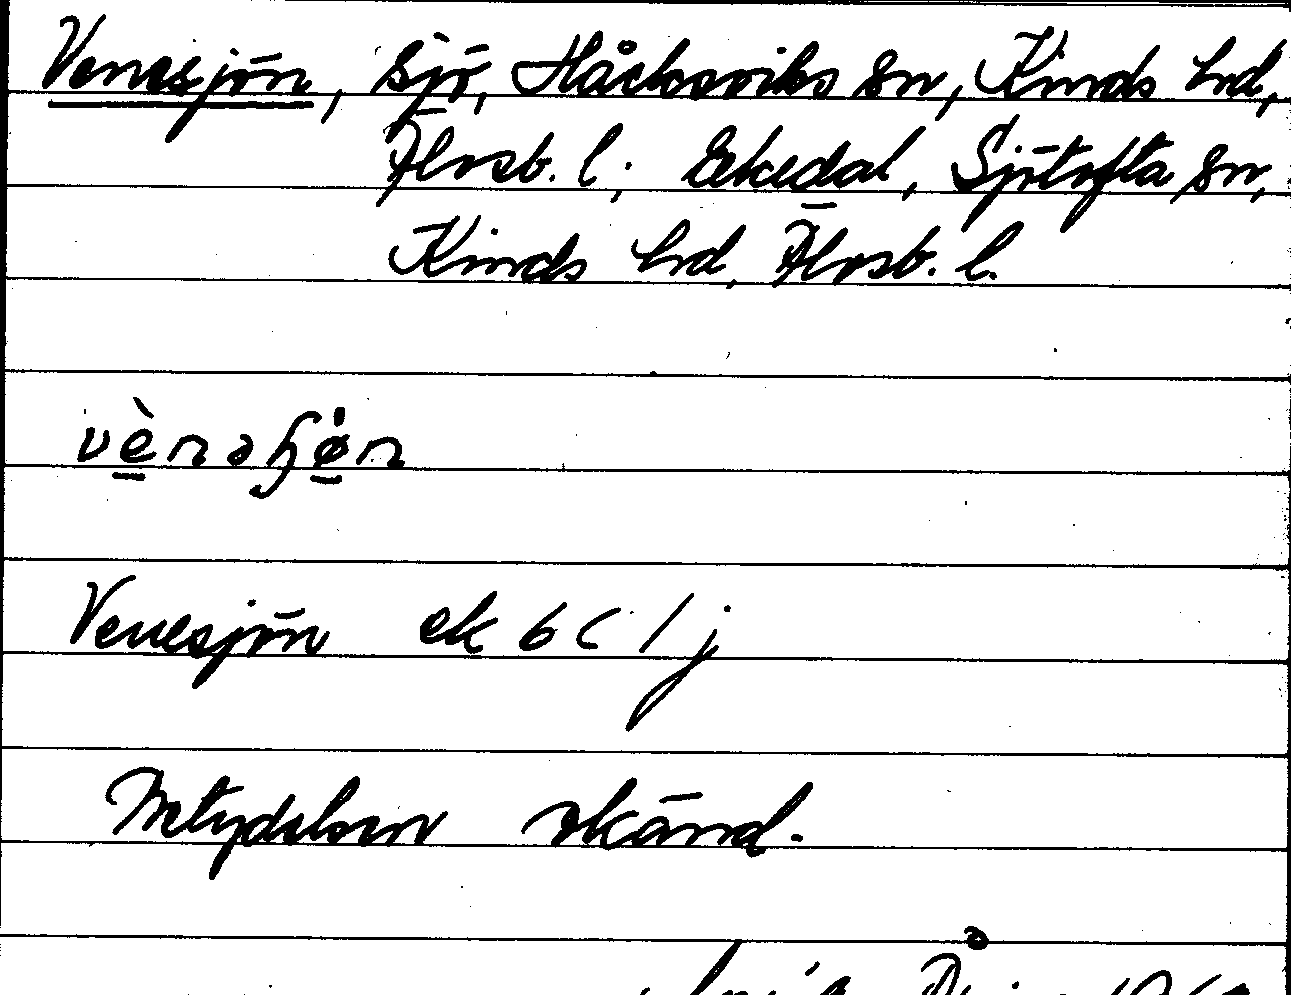 Venesjön, sjö, Håcksviks sn, Kinds hrd,
Älvsb. l; Ekedal, Sjötofta sn,
Kinds hrd, Älvsb. l.
Venesjön ek 6 C 1 j
Betydelsen okänd.